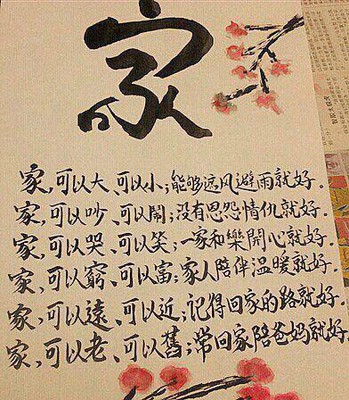 家
家,可以大、可以小;能够遮风避雨就好.
家,可以吵、可以鬧;没有恩怨情仇就好.
家,可以哭、可以笑;一家和樂開心就好.
家,可以窮、可以富;家人陪伴温暖就好.
家,可以遠、可以近;记得回家的路就好.
家,可以老、可以舊;常回家陪爸妈就好.